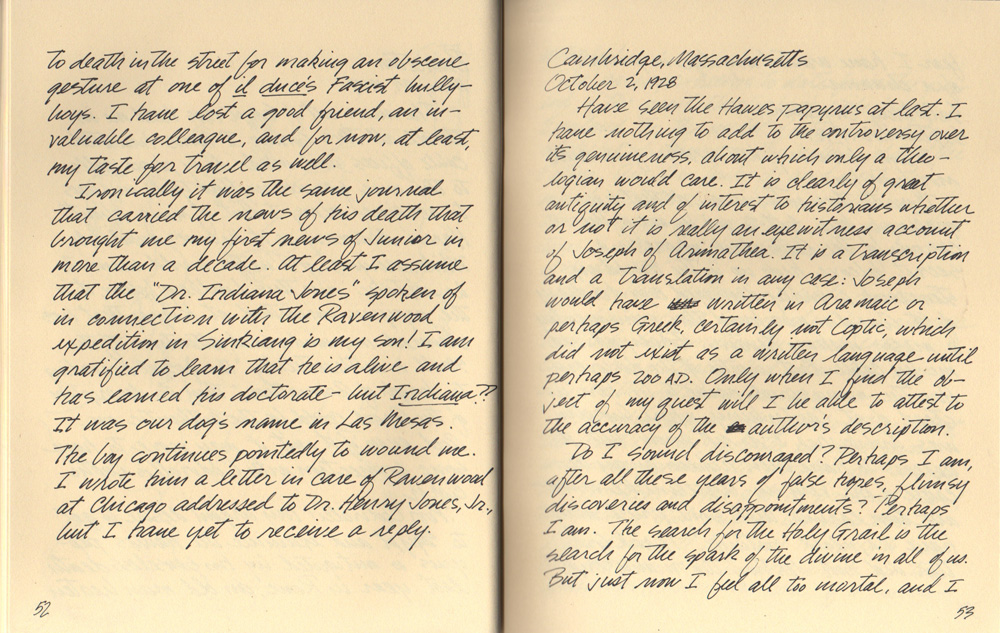 to death in the street for making an obscene
gesture at one of il duce's Fascist bully-
boys. I have lost a good friend, an in-
valuable colleague, and for now, at least,
my taste for travel as well.
Ironically it was the same journal
that carried the news of his death that
brought me my first news of Junior in
more than a decade. At least I assume
that the "Dr. Indiana Jones" spoken of
in connection with the Ravenwood
expedition in Sinkiang is my son! I am
gratified to learn that he is alive and
has earned his doctorate - but Indiana??
It was our dog's name in Las Mesas.
The boy continues pointedly to wound me.
I wrote him a letter in care of Ravenwood
at Chicago addressed to Dr. Henry Jones, Jr.,
but I have yet to receive a reply.
52
Cambridge, Massachusetts
October 2, 1928
Have seen the Hawes papyrus at last. I
have nothing to add to the controversy over
its genuineness, about which only a theo-
logian would care. It is clearly of great
antiquity and of interest to historians whether
or not it is really an eyewitness account
of Joseph of Arimathea. It is a transcription
and a translation in any case: Joseph
would have written in Aramaic or
perhaps Greek, certainly not Coptic, which
did not exist as a written language until
perhaps 200 AD. Only when I find the ob-
ject of my quest will I be able to attest to
the accuracy of the author's description.
Do I sound discouraged? Perhaps I am,
after all these years of false hopes, flimsy
discoveries and disappointments? Perhaps
I am. The search for the Holy Grail is the
search for the spark of the divine in all of us.
But just now I feel all too mortal, and I
53